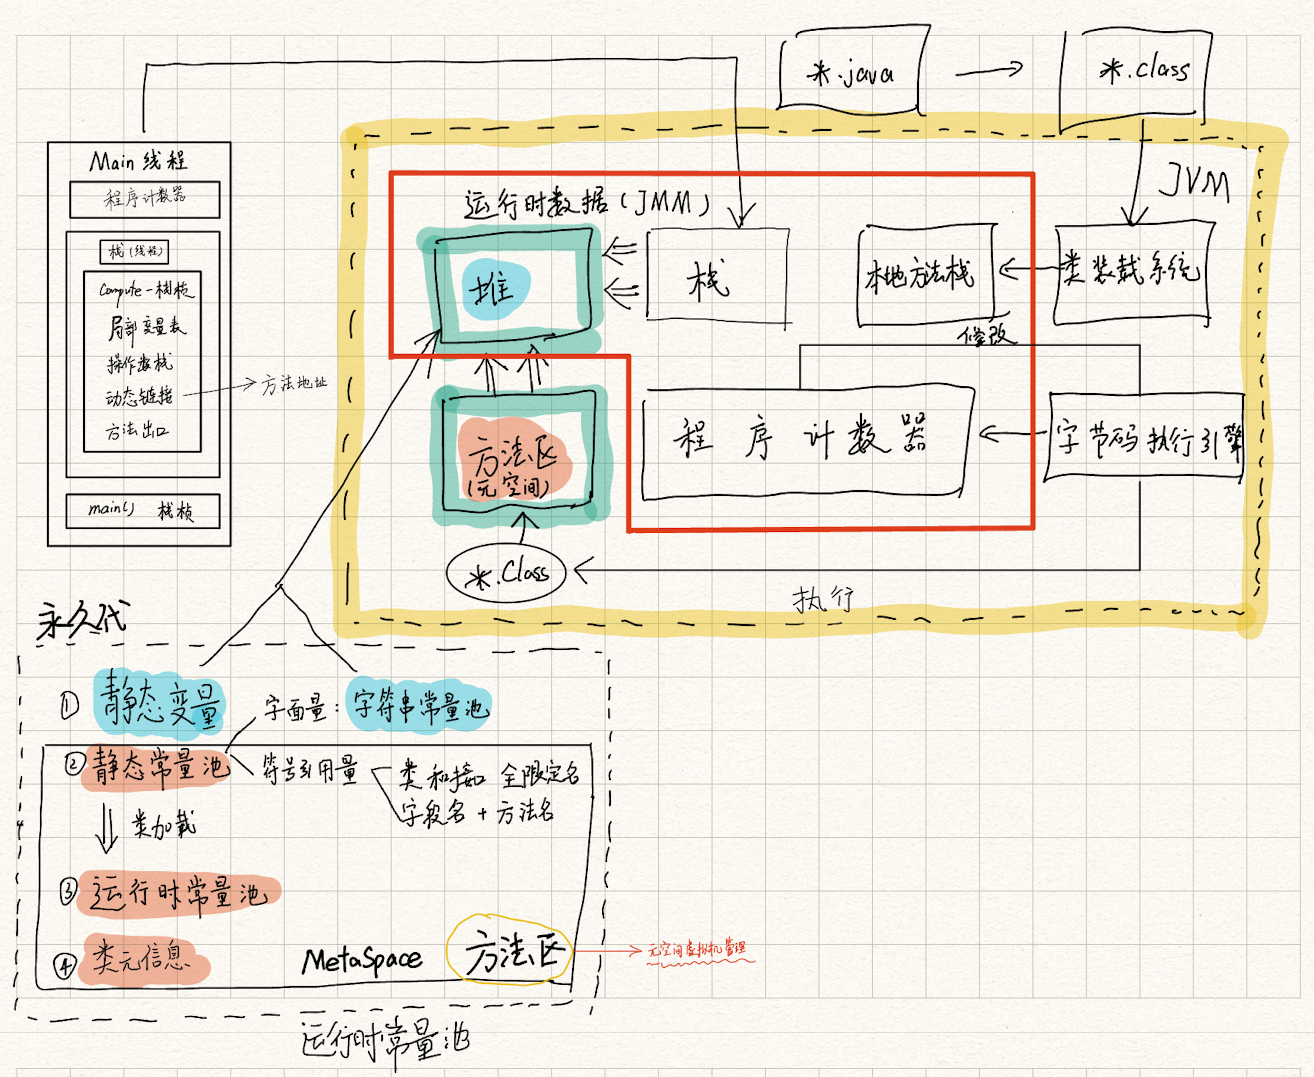 *.java
*.class
JVM
Main 线程
程序计数器
栈(线程)
Compute-栈桢
局部变量表
操作数栈
动态链接
方法地址
方法出口
main() 栈桢
运行时数据(JMM)
堆
栈
本地方法栈
类装载系统
修改
方法区
(元空间)
程序计数器
字节码执行引擎
*.Class
执行
永久代
① 静态变量
字面量：字符串常量池
② 静态常量池
符号引用量
类和接口 全限定名
字段名 + 方法名
类加载
③ 运行时常量池
④ 类元信息
MetaSpace
方法区
元空间虚拟机管理
运行时常量池